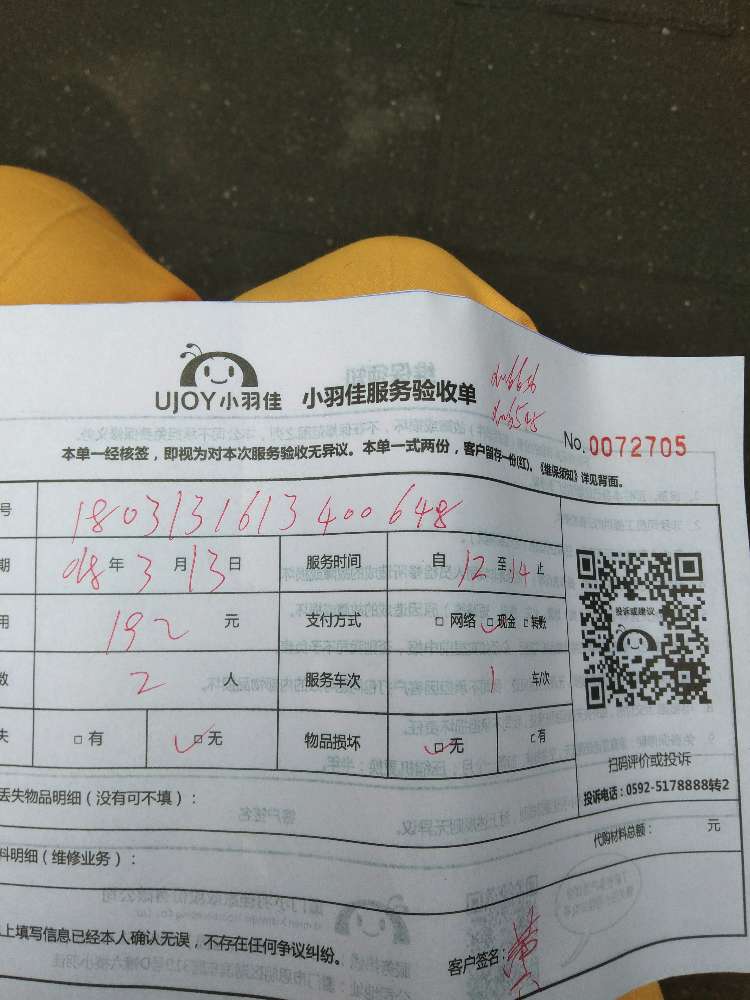 UJOY小羽佳 小羽佳服务验收单
No.0072705
本单一经核签，即视为对本次服务验收无异议。本单一式两份，客户留存一份(红)。《维保须知》详见背面。
号 1803131613400648
期 018年3月13日 服务时间 自12至14止
用 192元 支付方式 □网络 □现金 □转账
数 2人 服务车次 1车/次
失 □有 □无 物品损坏 □无 □有
投诉或建议
扫码评价或投诉
投诉电话：0592-5178888转2
丢失物品明细（没有可不填）：
代购材料总额： 元
料明细（维修业务）：
上填写信息已经本人确认无误，不存在任何争议纠纷。
客户签名：